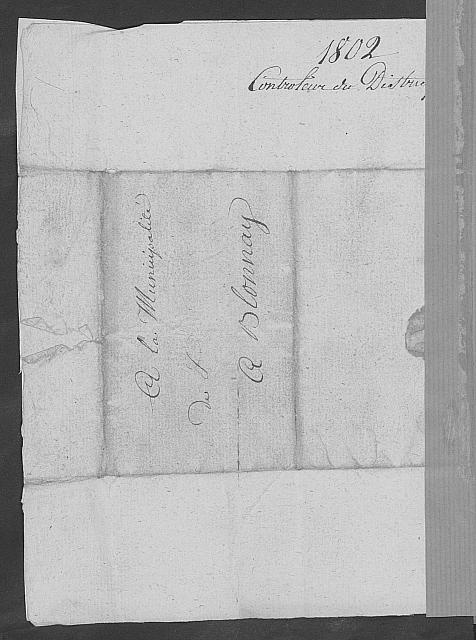 1802
Controleur du
A la Municipalité
de
A Blonnay